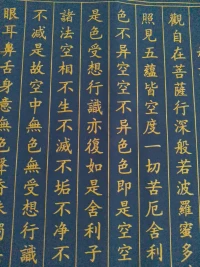 觀自在菩薩行深般若波羅蜜多
照見五蘊皆空度一切苦厄舍利
色不异空空不异色色即是空空
是色受想行識亦復如是舍利子
諸法空相不生不滅不垢不净不
不减是故空中無色無受想行識
眼耳鼻舌身意無色聲香味觸